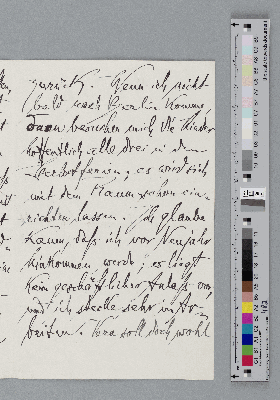 zurück. Wenn ich nicht
bald nach Berlin komme,
dann besuchen mich die Kinder
hoffentlich alle drei in den
Herbstferien; es wird sich
mit dem Raum schon ein-
richten lassen. Ich glaube
kaum, daß ich vor Neujahr
hinkommen werde; es liegt
kein geschäftlicher Anlaß vor
und ich stecke sehr in Ar-
beiten. Vera soll doch wohl